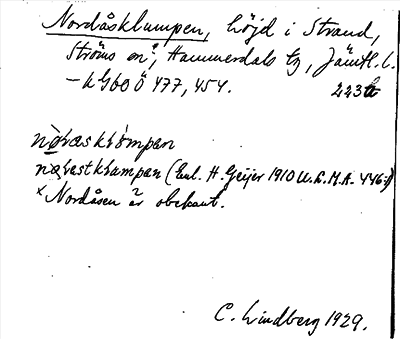 Nordåsklumpen, höjd i Strand,
Ströms sn, Hammerdals tg, Jämtl. l.
– kGbO Ö 477, 454. 223
nòlæsklómpen
(Enl. H. Geijer 1910 U.L.M.A. 446:)
× Nordåsen är obekant.
C. Lindberg 1929.